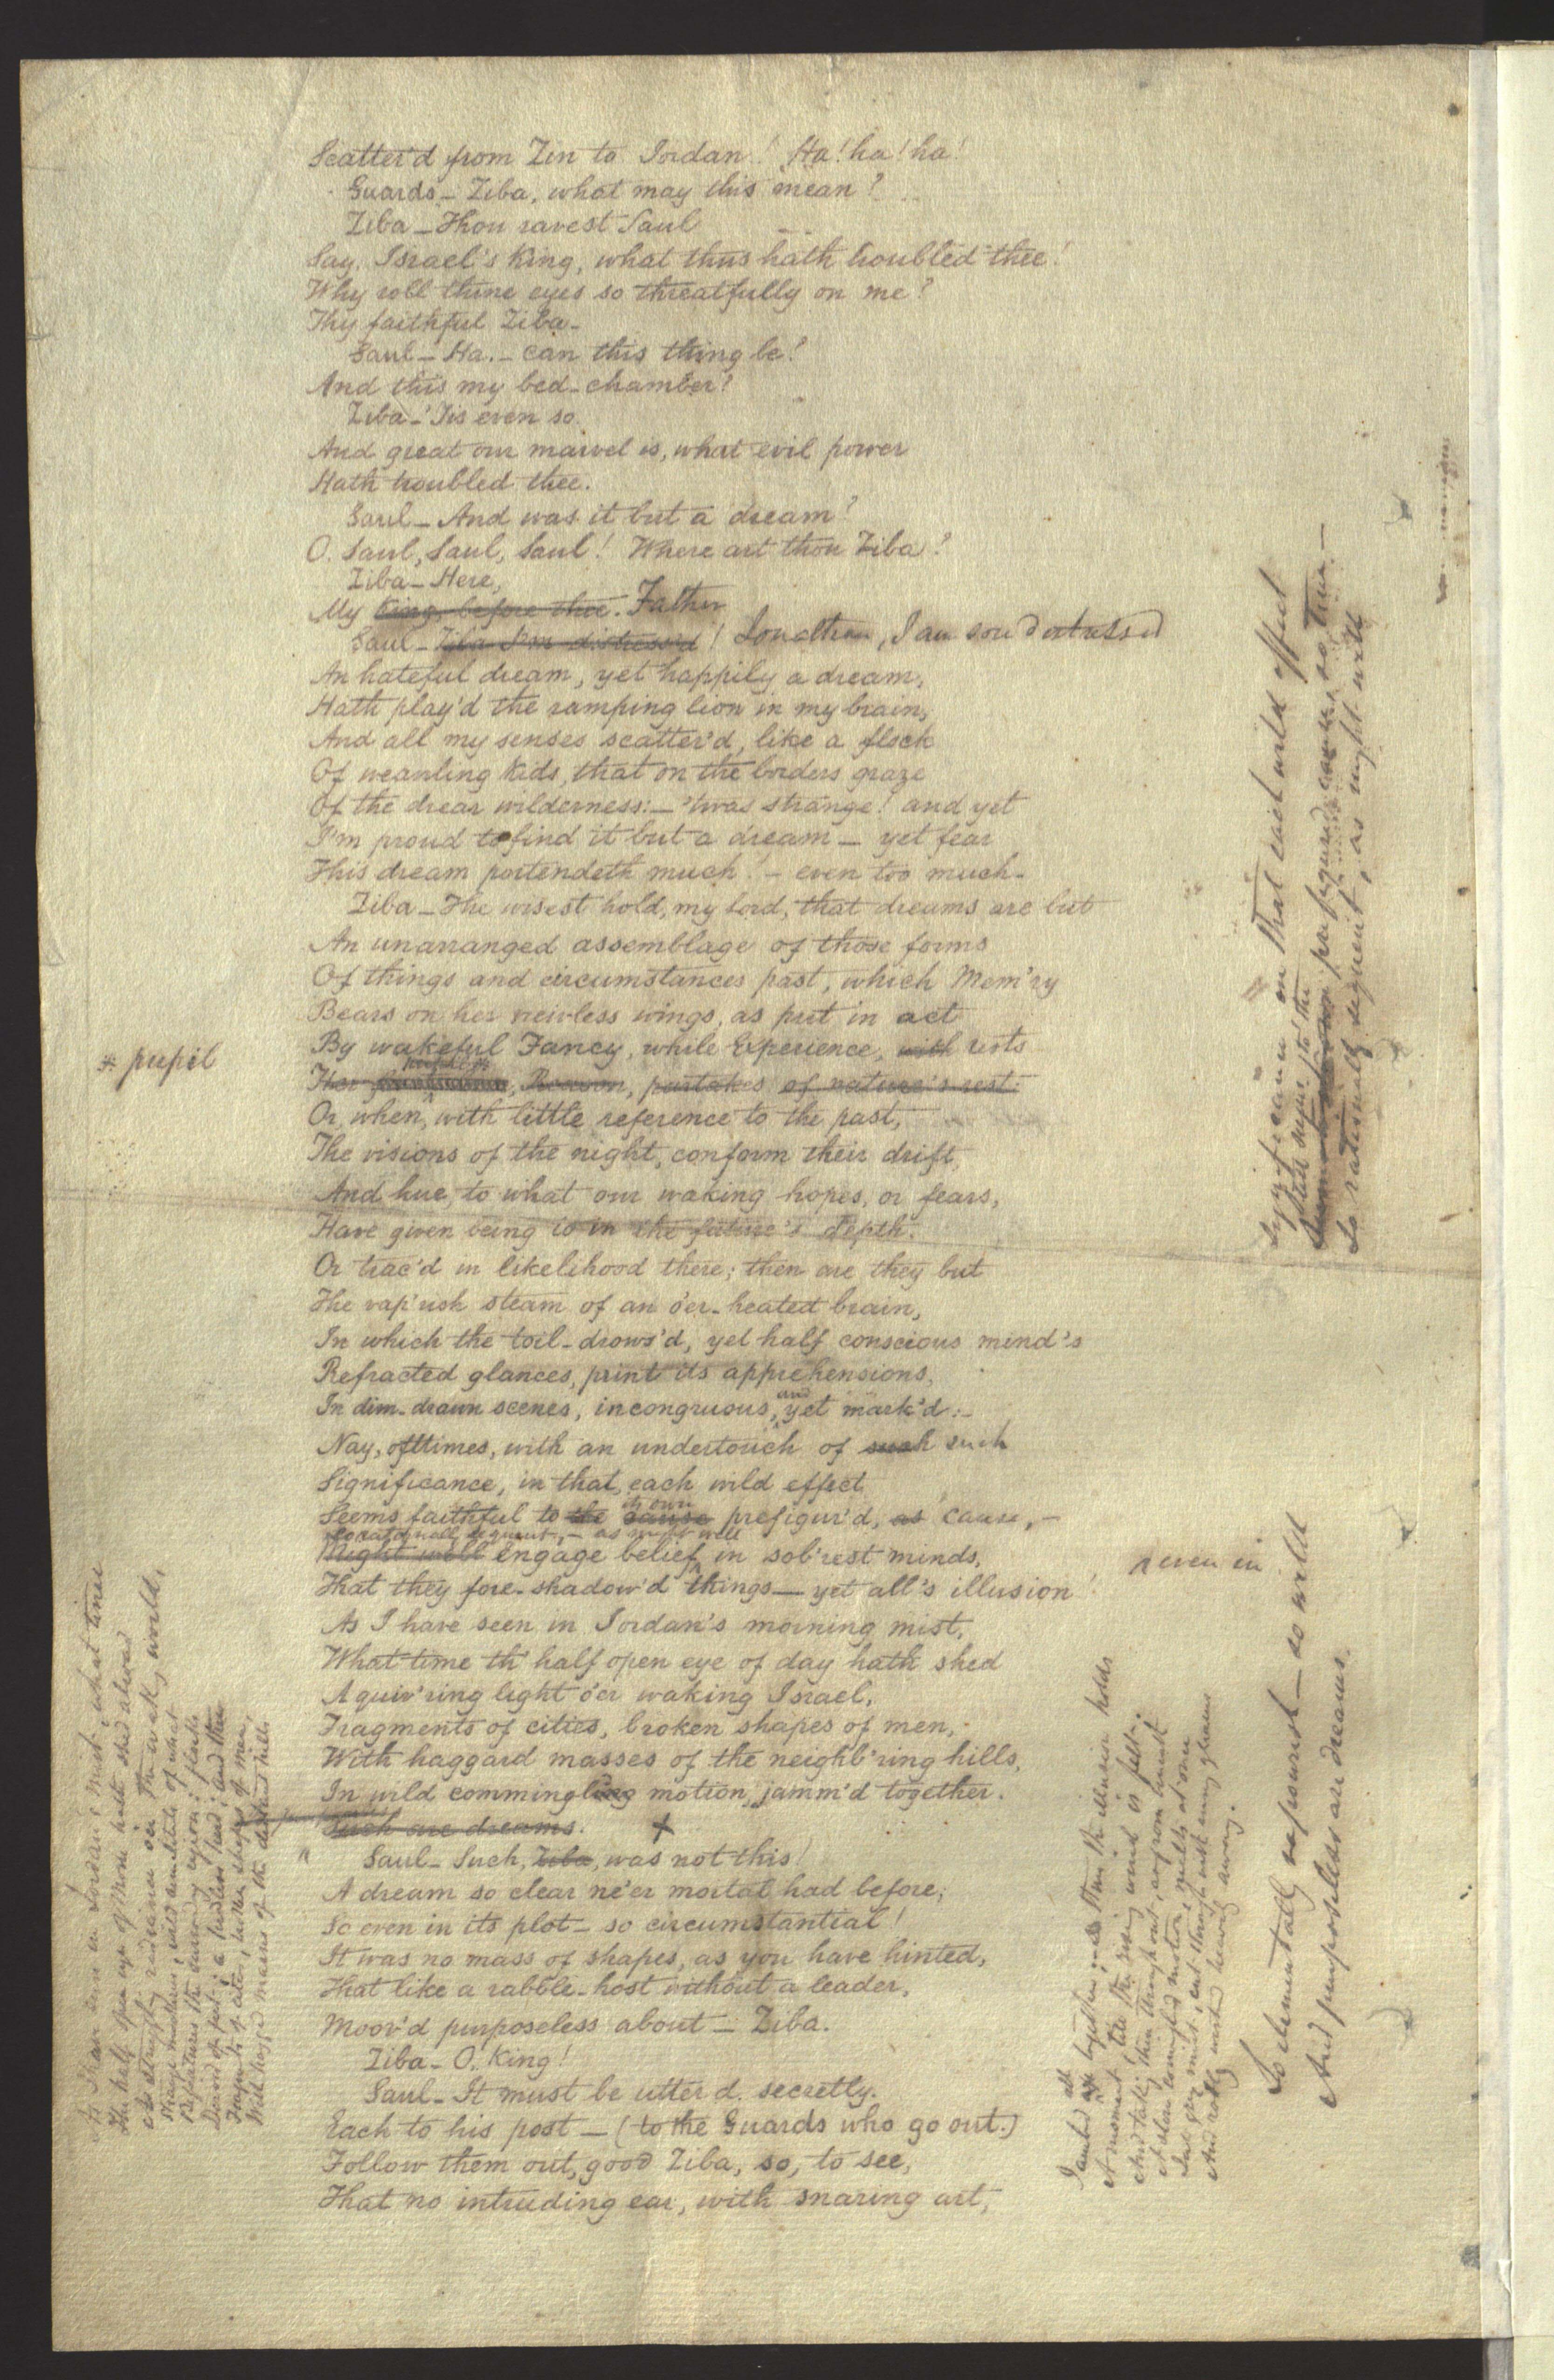 Scatter'd from Zin to Jordan! Ha! ha! ha!
Guards_ Ziba, what may this mean?
Ziba_Thou ravest Saul
Say, Israel's King, what thus hath troubled thee!
Why roll thine eyes so threatfully on me?
Thy faithful Ziba_
Saul_Ha._can this thing be!
And this my bed-chamber?
Ziba_'Tis even so.
And great our marvel is, what evil power
Hath troubled thee.
Saul_And was it but a dream?
O. Saul, Saul, Saul! Where art thou Ziba?
Ziba_Here,
My King, before thee. Father
Saul_Ziba I'm distress'd! Jonathan, I am sore distressed
An hateful dream, yet happily a dream,
Hath play'd the ramping lion in my brain,
And all my senses scatter'd, like a flock
Of weanling kids, that on the borders graze
Of the drear wilderness:_'twas strange! and yet
I'm proud to find it but a dream_yet fear
This dream portendeth much!_even too much_
Ziba_The wisest hold, my lord, that dreams are but
An unarranged assemblage of those forms
Of things and circumstances past, which Mem'ry
Bears on her viewless wings, as put in act
By wakeful Fancy, while Experience, with rests
* pupil
Her Reason, partakes of nature's rest:
Or, when, with little reference to the past,
The visions of the night, conform their drift,
And hue, to what our waking hopes, or fears,
Have given being to in the future's depth.
Or trac'd in likelihood there; then are they but
The vap'rish steam of an o'er-heated brain,
In which the toil-drows'd, yet half conscious mind's
Refracted glances, print its apprehensions,
In dim-drawn scenes, incongruous, and yet mark'd:_
Nay, ofttimes, with an undertouch of such such
Significance, in that, each wild effect
its own
Seems faithful to the cause prefigur'd, as cause,_
so rationally sequent,_as might well
Might well engage belief, in sob'rest minds,
even in
That they fore-shadow'd things_yet all's illusion!
As I have seen in Jordan's morning mist,
What time th' half open eye of day hath shed
A quiv'ring light o'er waking Israel,
Fragments of cities, broken shapes of men,
With haggard masses of the neighb'ring hills,
In wild commingling motion, jamm'd together.
Such are dreams. X
Saul_Such, Ziba, was not this!
A dream so clear ne'er mortal had before;
So even in its plot_so circumstantial!
It was no mass of shapes, as you have hinted,
That like a rabble-host without a leader,
Moov'd purposeless about_Ziba.
Ziba_O, King!
Saul_It must be utter'd secretly.
Each to his post_(to the Guards who go out.)
Follow them out, good Ziba, so, to see,
That no intruding ear, with snaring art,
Significance on that each wild effect
prefigured cause, so true_
So rationally sequent, as might with
As I have seen in Jordan's mist, what time
The half open eye of Morn hath shed abroad
o'er the waking world,
broken shapes of men,
With haggard masses of the distant hills
Jumbled all together; the illusion holds
A moment, till the rising wind is felt;
And rolling
away.
So elementally vaporish_so wild
And purposeless are dreams.